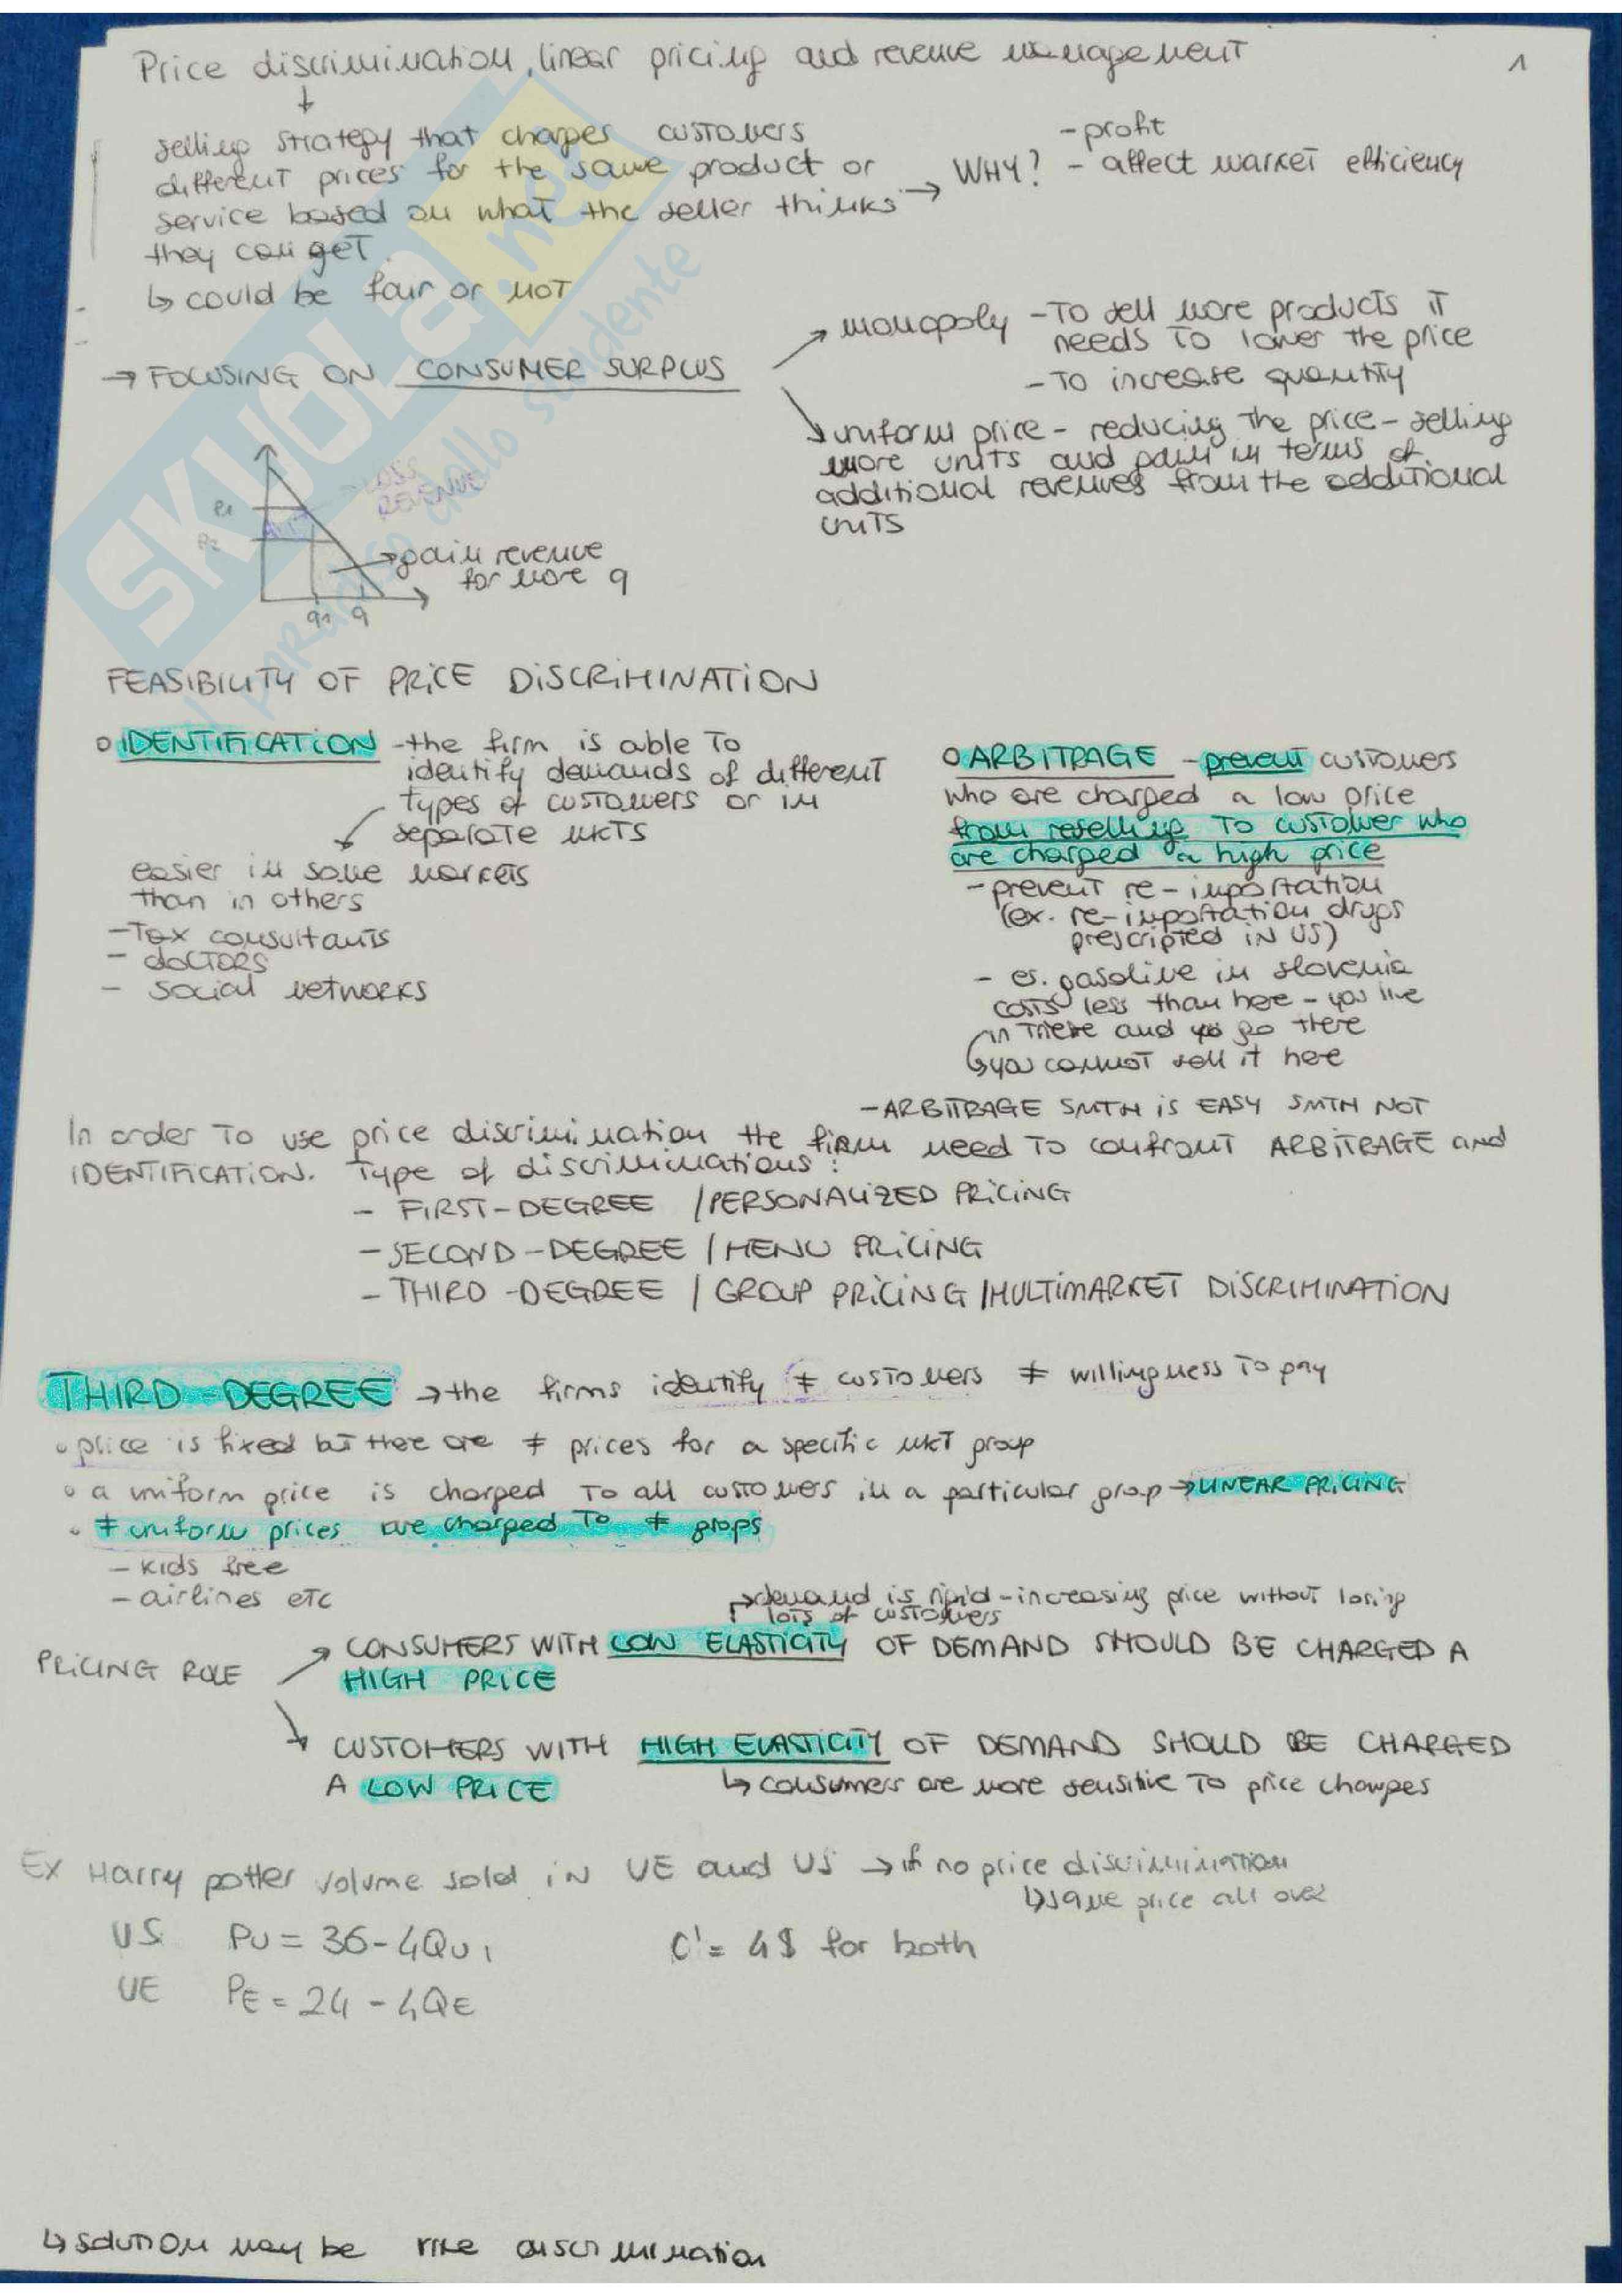 Price discrimination, linear pricing and revenue management
1
selling strategy that charges customers
different prices for the same product or
service based on what the seller thinks
they can get.
↳ could be fair or not
→ WHY?
- profit
- affect market efficiency
→ FOCUSING ON CONSUMER SURPLUS
monopoly - To sell more products it
needs to lower the price
- To increase quantity
uniform price - reducing the price - selling
more units and gain in terms of
additional revenues from the additional
units
LOSS
REVENUE
P1
P2
gain revenue
for more q
q1 q
FEASIBILITY OF PRICE DISCRIMINATION
IDENTIFICATION - the firm is able to
identify demands of different
types of customers or in
separate MKTS
easier in some markets
than in others
- Tax consultants
- doctors
- social networks
ARBITRAGE - prevent customers
who are charged a low price
from reselling to customer who
are charged a high price
- prevent re-importation
(ex. re-importation drugs
prescripted in US)
- es. gasoline in slovenia
costs less than here - you live
in there and go there
↳ you cannot sell it here
- ARBITRAGE SMTH IS EASY SMTH NOT
In order to use price discrimination the firm need to confront ARBITRAGE and
IDENTIFICATION. Type of discriminations:
- FIRST-DEGREE / PERSONALIZED PRICING
- SECOND-DEGREE / MENU PRICING
- THIRD-DEGREE / GROUP PRICING / MULTIMARKET DISCRIMINATION
THIRD-DEGREE → the firms identify ≠ customers ≠ willingness to pay
price is fixed bt there are ≠ prices for a specific mkt group
a uniform price is charged to all customers in a particular grop → LINEAR PRICING
≠ uniform prices are charged to ≠ grops
- kids free
- airlines etc
→ demand is rigid - increasing price without losing
lots of customers
PRICING ROLE
CONSUMERS WITH LOW ELASTICITY OF DEMAND SHOULD BE CHARGED A
HIGH PRICE
CUSTOMERS WITH HIGH ELASTICITY OF DEMAND SHOULD BE CHARGED
A LOW PRICE
↳ consumers are more sensitive to price changes
Ex Harry potter volume sold in UE and US → if no price discrimination
↳ same price all over
US PU = 36 - 4QU
C' = 4$ for both
UE PE = 24 - 4QE
↳ solution may be discrimination
SKUOLA.net
il paradiso dello studente